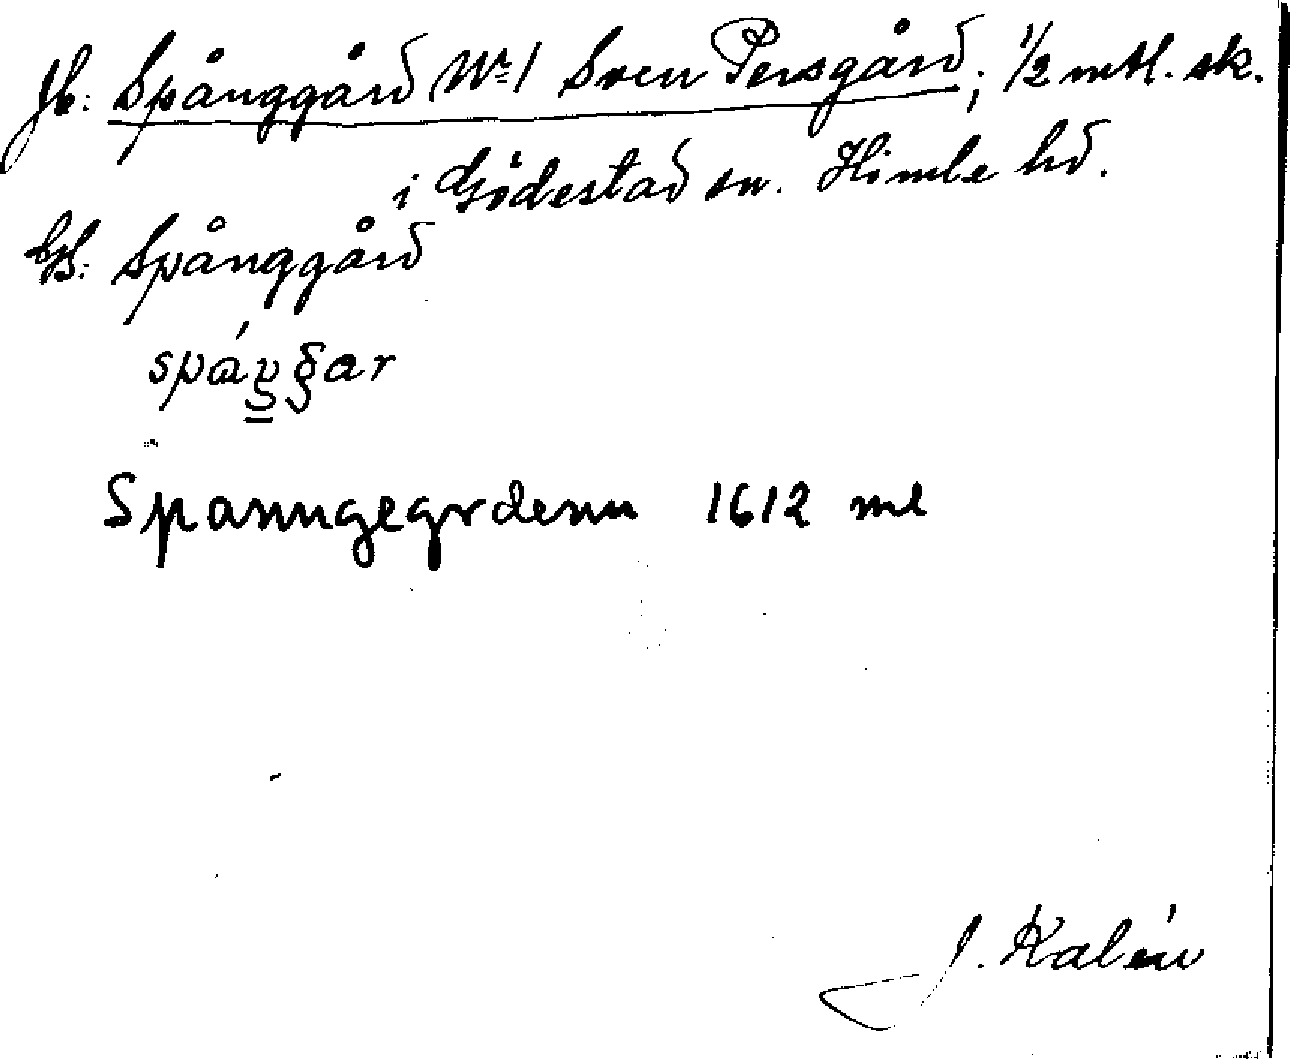 Jb: Spånggård Nr 1 Sven Persgård; 1/2 mtl. sk.
i Gödestad sn. Himle hd.
Gb: Spånggård
Spanngegrdenn 1612 ml
J. Kalén